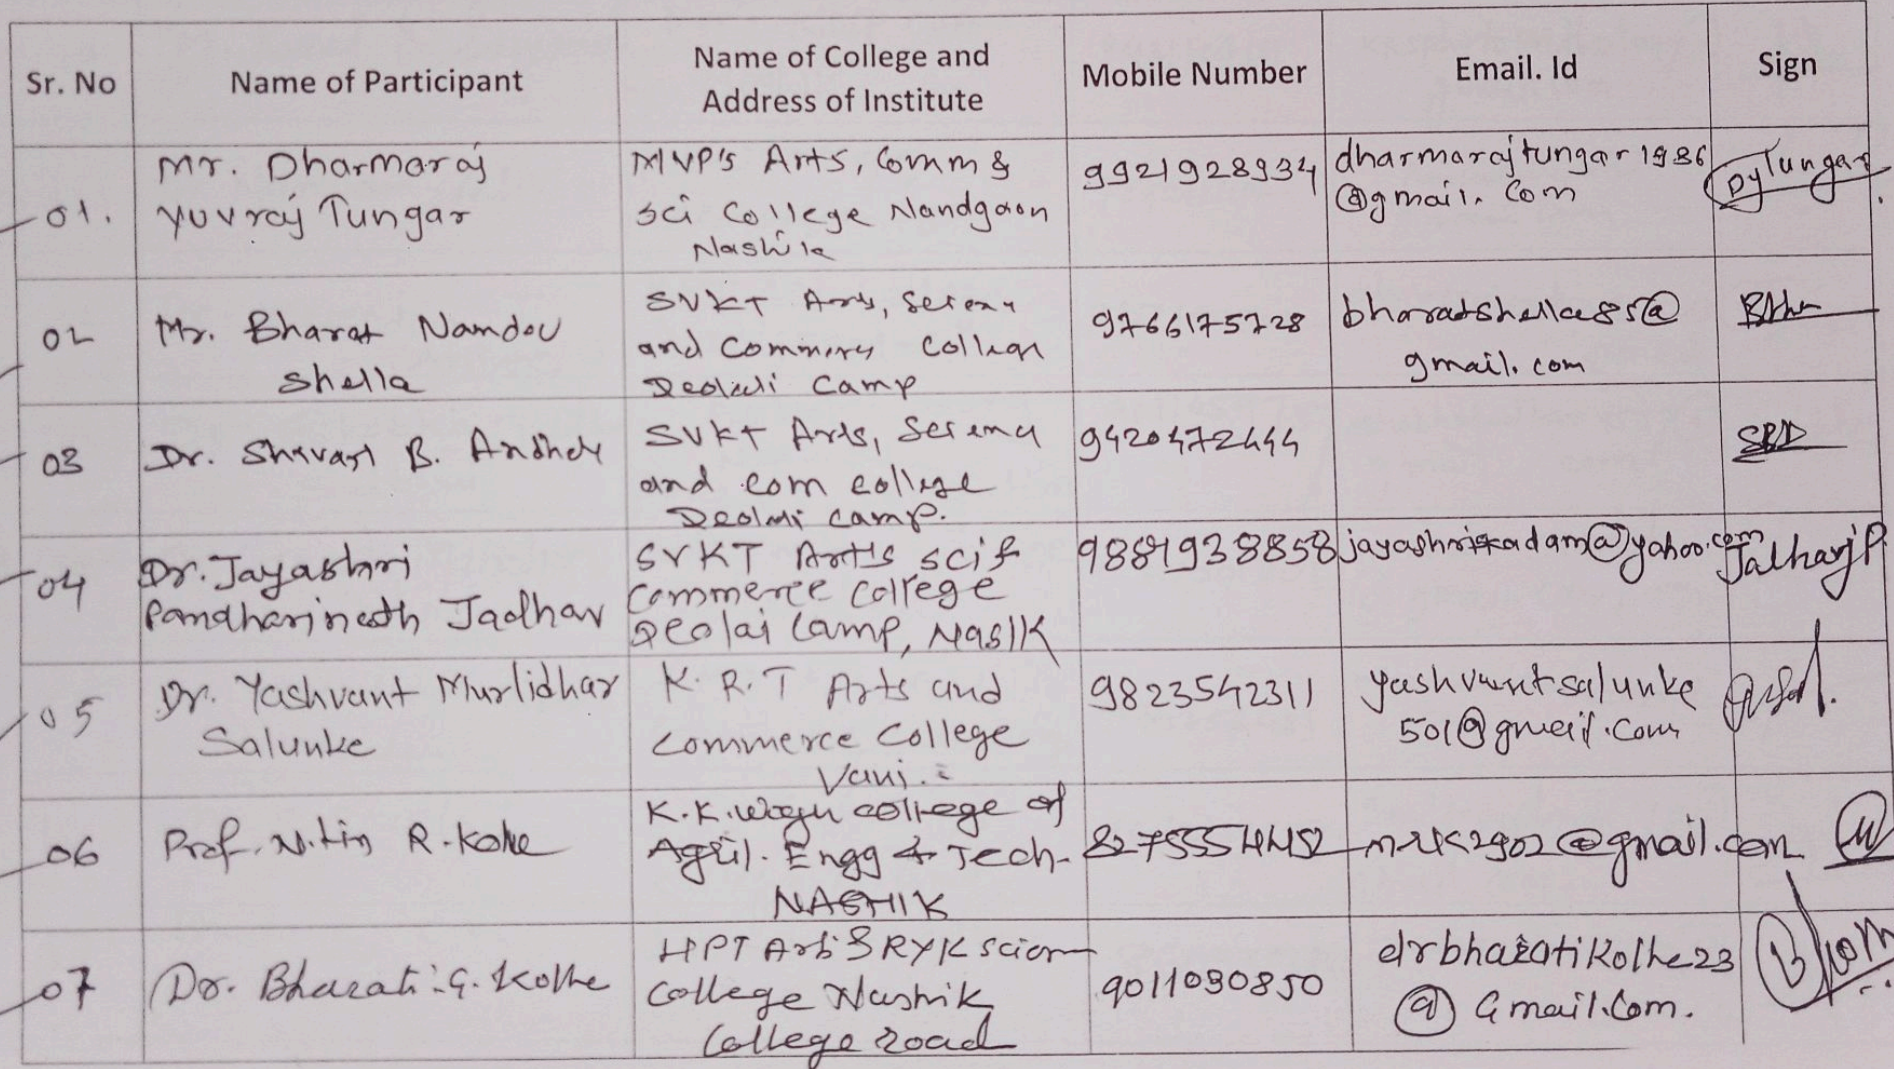 Sr. No
Name of Participant
Name of College and
Address of Institute
Mobile Number
Email. Id
Sign
01.
Mr. Dharmaraj
Yuvraj Tungar
MVP's Arts, Comm &
Sci College Nandgaon
Nashik
9921928934
dharmarajtungar1986
@gmail. Com
DyTungar
02
Mr. Bharat Namdev
Shella
SVKT Arts,
and College
Camp
9766175728
@
gmail.com
03
Dr. B.
SVKT Arts,
and com college
camp.
SBD
04
Dr. Jayashri
Pandharinath Jadhav
SVKT Arts sci &
Commerce College
Camp, Nasik
jayashriskadam@yahoo.com
05
Dr. Yashvant Murlidhar
Salunke
K. R. T Arts and
Commerce College
Vani.
9823542311
yashvantsalunke
501@gmail.com
06
Prof. Nitin R. Kolhe
K. K. Wagh college of
Agril. Engg & Tech-
NASHIK
@gmail.com
07
Dr. Bharati G. Kolhe
HPT Arts & RYK Science
College Nashik
College road
9011090850
drbharatikolhe23
@ Gmail.Com.